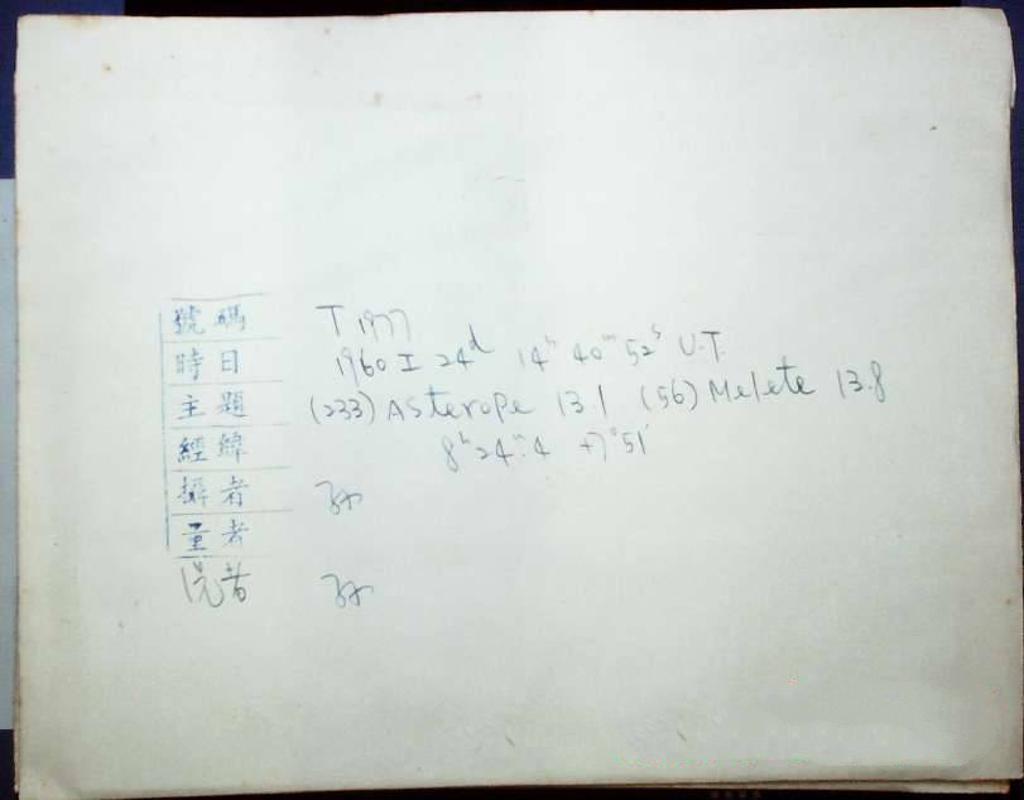 號碼 T 1977
時日 1960 I 24d 14h 40m 52s U.T.
主題 (233) Asterope 13.1 (56) Melete 13.8
經緯 8h 24m.4 +7°51'
攝者 孙
量者
洗者 孙